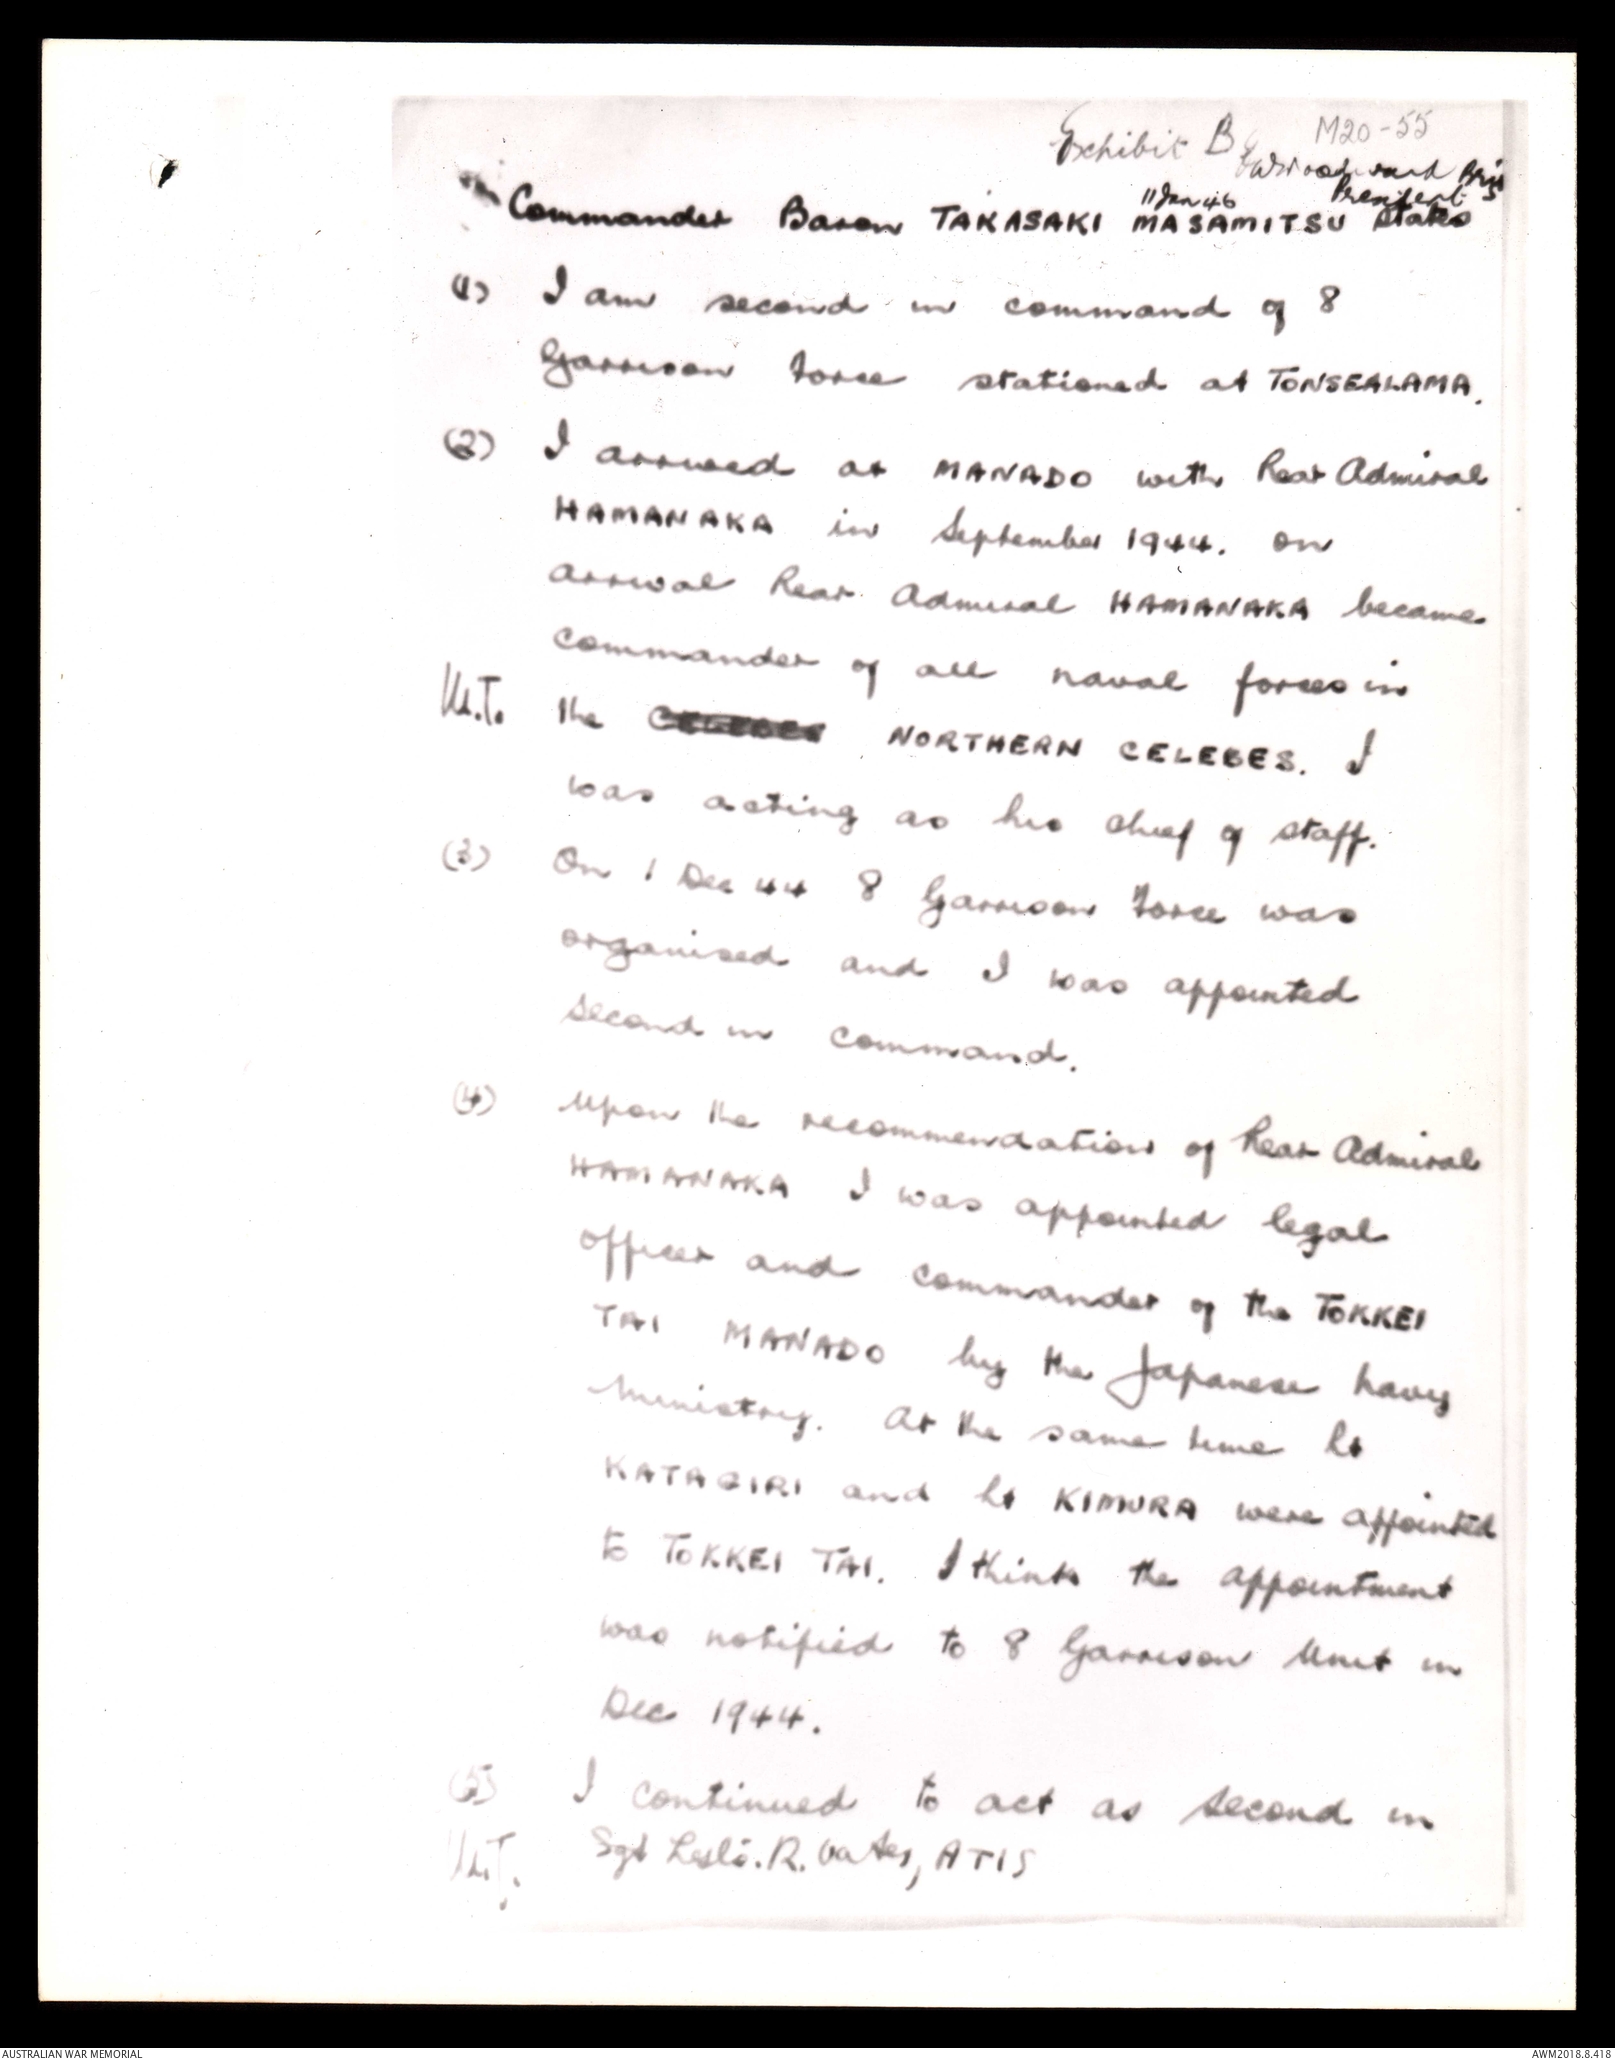 Exhibit B M20-55
Brig
11 Jan 46 President
Commander Baron TAKASAKI MASAMITSU states
(1) I am second in command of 8
Garrison Force stationed at TONSEALAMA.
(2) I arrived at MANADO with Rear Admiral
HAMANAKA in September 1944. On
arrival Rear Admiral HAMANAKA became
commander of all naval forces in
the CELEBES NORTHERN CELEBES. I
was acting as his chief of staff.
(3) On 1 Dec 44 8 Garrison Force was
organised and I was appointed
second in command.
(4) Upon the recommendation of Rear Admiral
HAMANAKA I was appointed legal
officer and commander of the TOKKEI
TAI MANADO by the Japanese Navy
Ministry. At the same time Lt
KATAGIRI and Lt KIMURA were appointed
to TOKKEI TAI. I think the appointment
was notified to 8 Garrison Unit in
Dec 1944.
(5) I continued to act as second in
Sgt Leslie. R. Oates, ATIS
AUSTRALIAN WAR MEMORIAL AWM2018.8.418